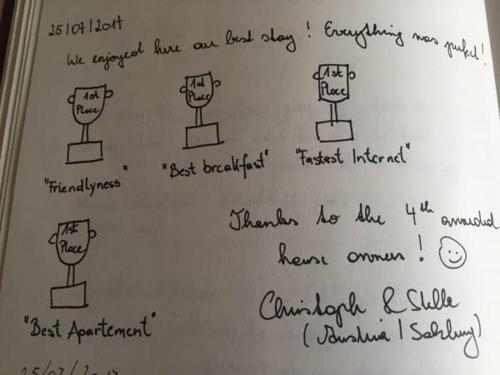 25/07/2017
We enjoyed here our best stay! Everything was perfect!
1st
Place
1st
Place
1st
Place
"Friendlyness"
"Best breakfast"
"Fastest Internet"
1st
Place
"Best Apartement"
Thanks to the 4th awarded
house owners! 
Christoph &
(Austria | Salzburg)
25/07/20